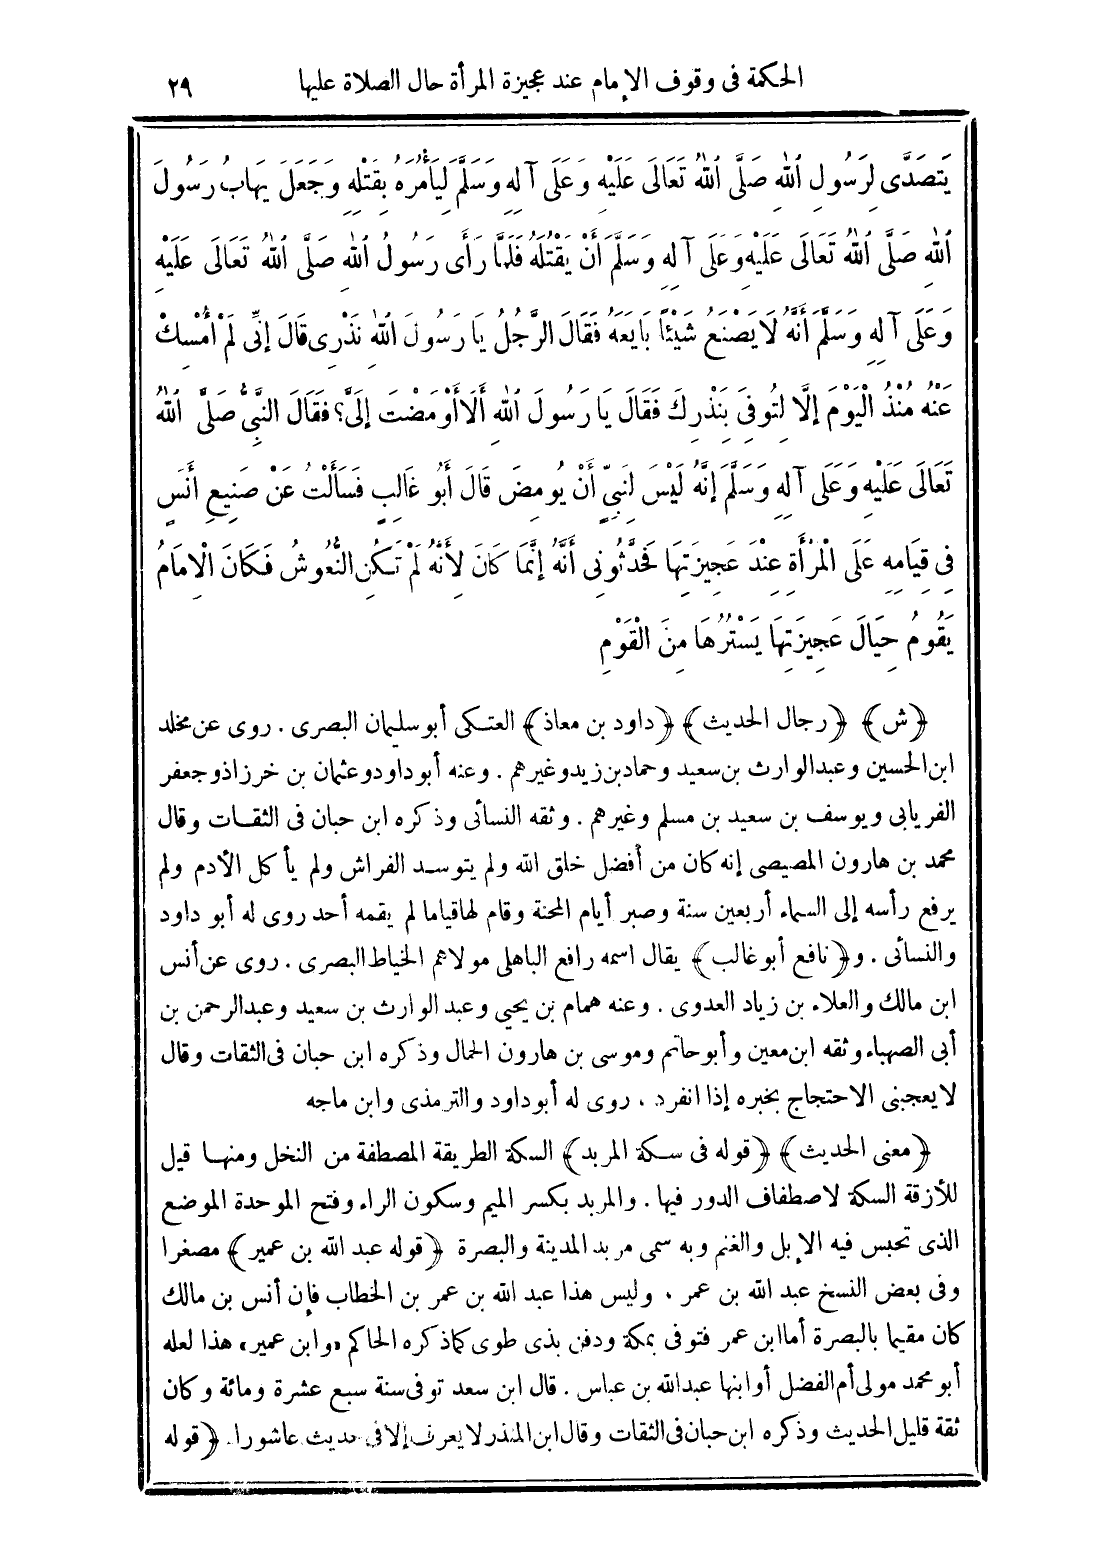 الحكمة فى وقوف الإمام عند عجيزة المرأة حال الصلاة عليها ٢٩
يَتَصَدَّى لِرَسُولِ اللهِ صَلَّى اللهُ تَعَالَى عَلَيْهِ وَعَلَى آلِهِ وَسَلَّمَ لِيَأْمُرَهُ بِقَتْلِهِ وَجَعَلَ يَهَابُ رَسُولَ
اللهِ صَلَّى اللهُ تَعَالَى عَلَيْهِ وَعَلَى آلِهِ وَسَلَّمَ أَنْ يَقْتُلَهُ فَلَمَّا رَأَى رَسُولُ اللهِ صَلَّى اللهُ تَعَالَى عَلَيْهِ
وَعَلَى آلِهِ وَسَلَّمَ أَنَّهُ لَا يَصْنَعُ شَيْئًا بَايَعَهُ فَقَالَ الرَّجُلُ يَا رَسُولَ اللهِ نَذْرِى قَالَ إِنِّى لَمْ أُمْسِكْ
عَنْهُ مُنْذُ الْيَوْمَ إِلَّا لِتُوفِىَ بِنَذْرِكَ فَقَالَ يَا رَسُولَ اللهِ أَلَا أَوْمَضْتَ إِلَىَّ؟ فَقَالَ النَّبِىُّ صَلَّى اللهُ
تَعَالَى عَلَيْهِ وَعَلَى آلِهِ وَسَلَّمَ إِنَّهُ لَيْسَ لِنَبِىٍّ أَنْ يُومِضَ قَالَ أَبُو غَالِبٍ فَسَأَلْتُ عَنْ صَنِيعِ أَنَسٍ
فِى قِيَامِهِ عَلَى الْمَرْأَةِ عِنْدَ عَجِيزَتِهَا فَحَدَّثُونِى أَنَّهُ إِنَّمَا كَانَ لِأَنَّهُ لَمْ تَكُنِ النُّعُوشُ فَكَانَ الْإِمَامُ
يَقُومُ حِيَالَ عَجِيزَتِهَا يَسْتُرُهَا مِنَ الْقَوْمِ
﴿ش﴾ ﴿رجال الحديث﴾ ﴿داود بن معاذ﴾ العتكى أبو سليمان البصرى . روى عن مخلد
ابن الحسين وعبد الوارث بن سعيد وحماد بن زيد وغيرهم . وعنه أبو داود وعثمان بن خرزاذ وجعفر
الفريابى ويوسف بن سعيد بن مسلم وغيرهم . وثقه النسائى وذكره ابن حبان فى الثقات وقال
محمد بن هارون المصيصى إنه كان من أفضل خلق الله ولم يتوسد الفراش ولم يأكل الأدم ولم
يرفع رأسه إلى السماء أربعين سنة وصبر أيام المحنة وقام لها قياما لم يقمه أحد روى له أبو داود
والنسائى . و﴿نافع أبو غالب﴾ يقال اسمه رافع الباهلى مولاهم الخياط البصرى . روى عن أنس
ابن مالك والعلاء بن زياد العدوى . وعنه همام بن يحيى وعبد الوارث بن سعيد وعبد الرحمن بن
أبى الصهباء وثقه ابن معين وأبو حاتم وموسى بن هارون الحمال وذكره ابن حبان فى الثقات وقال
لا يعجبنى الاحتجاج بخبره إذا انفرد . روى له أبو داود والترمذى وابن ماجه
﴿معنى الحديث﴾ ﴿قوله فى سكة المربد﴾ السكة الطريقة المصطفة من النخل ومنها قيل
للأزقة السكة لاصطفاف الدور فيها . والمربد بكسر الميم وسكون الراء وفتح الموحدة الموضع
الذى تحبس فيه الإبل والغنم وبه سمى مربد المدينة والبصرة ﴿قوله عبد الله بن عمير﴾ مصغرا
وفى بعض النسخ عبد الله بن عمر . وليس هذا عبد الله بن عمر بن الخطاب فإن أنس بن مالك
كان مقيما بالبصرة أما ابن عمر فتوفى بمكة ودفن بذى طوى كما ذكره الحاكم «وابن عمير» هذا لعله
أبو محمد مولى أم الفضل أو ابنها عبد الله بن عباس . قال ابن سعد توفى سنة سبع عشرة ومائة وكان
ثقة قليل الحديث وذكره ابن حبان فى الثقات وقال ابن المنذر لا يعرف إلا فى حديث عاشورا. ﴿قوله